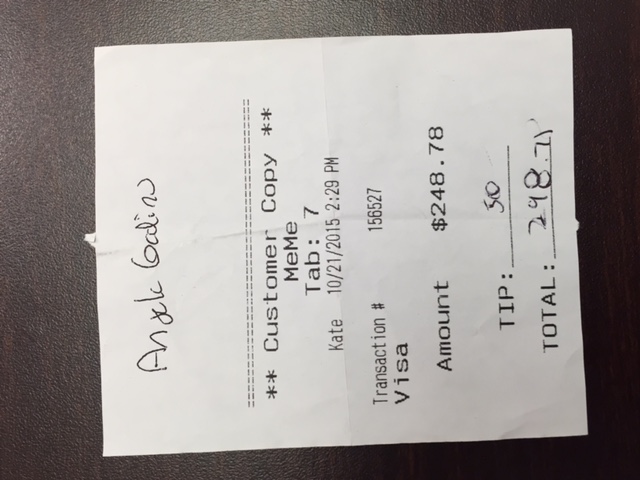 Angela Godino
=====================================
** Customer Copy **
MeMe
Tab: 7
Kate 10/21/2015 2:29 PM
Transaction # 156527
Visa
Amount $248.78
TIP: 50
TOTAL: 298.78